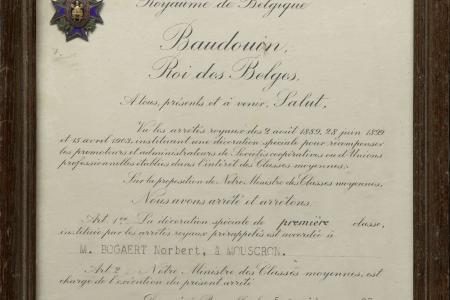 Royaume de Belgique
Baudouin,
Roi des Belges,
A tous, présents et à venir, Salut,
Vu les arrêtés royaux des 2 août 1889, 28 juin 1899
et 15 avril 1903, instituant une décoration spéciale pour récompenser
les promoteurs et administrateurs de Sociétés coopératives ou d'Unions
professionnelles établies dans l'intérêt des Classes moyennes;
Sur la proposition de Notre Ministre des Classes moyennes,
Nous avons arrêté et arrêtons:
Art. 1er La décoration spéciale de première classe,
instituée par les arrêtés royaux prérappelés est accordée à
M. BOGAERT Norbert, à MOUSCRON.
Art. 2 Notre Ministre des Classes moyennes, est
chargé de l'exécution du présent arrêté